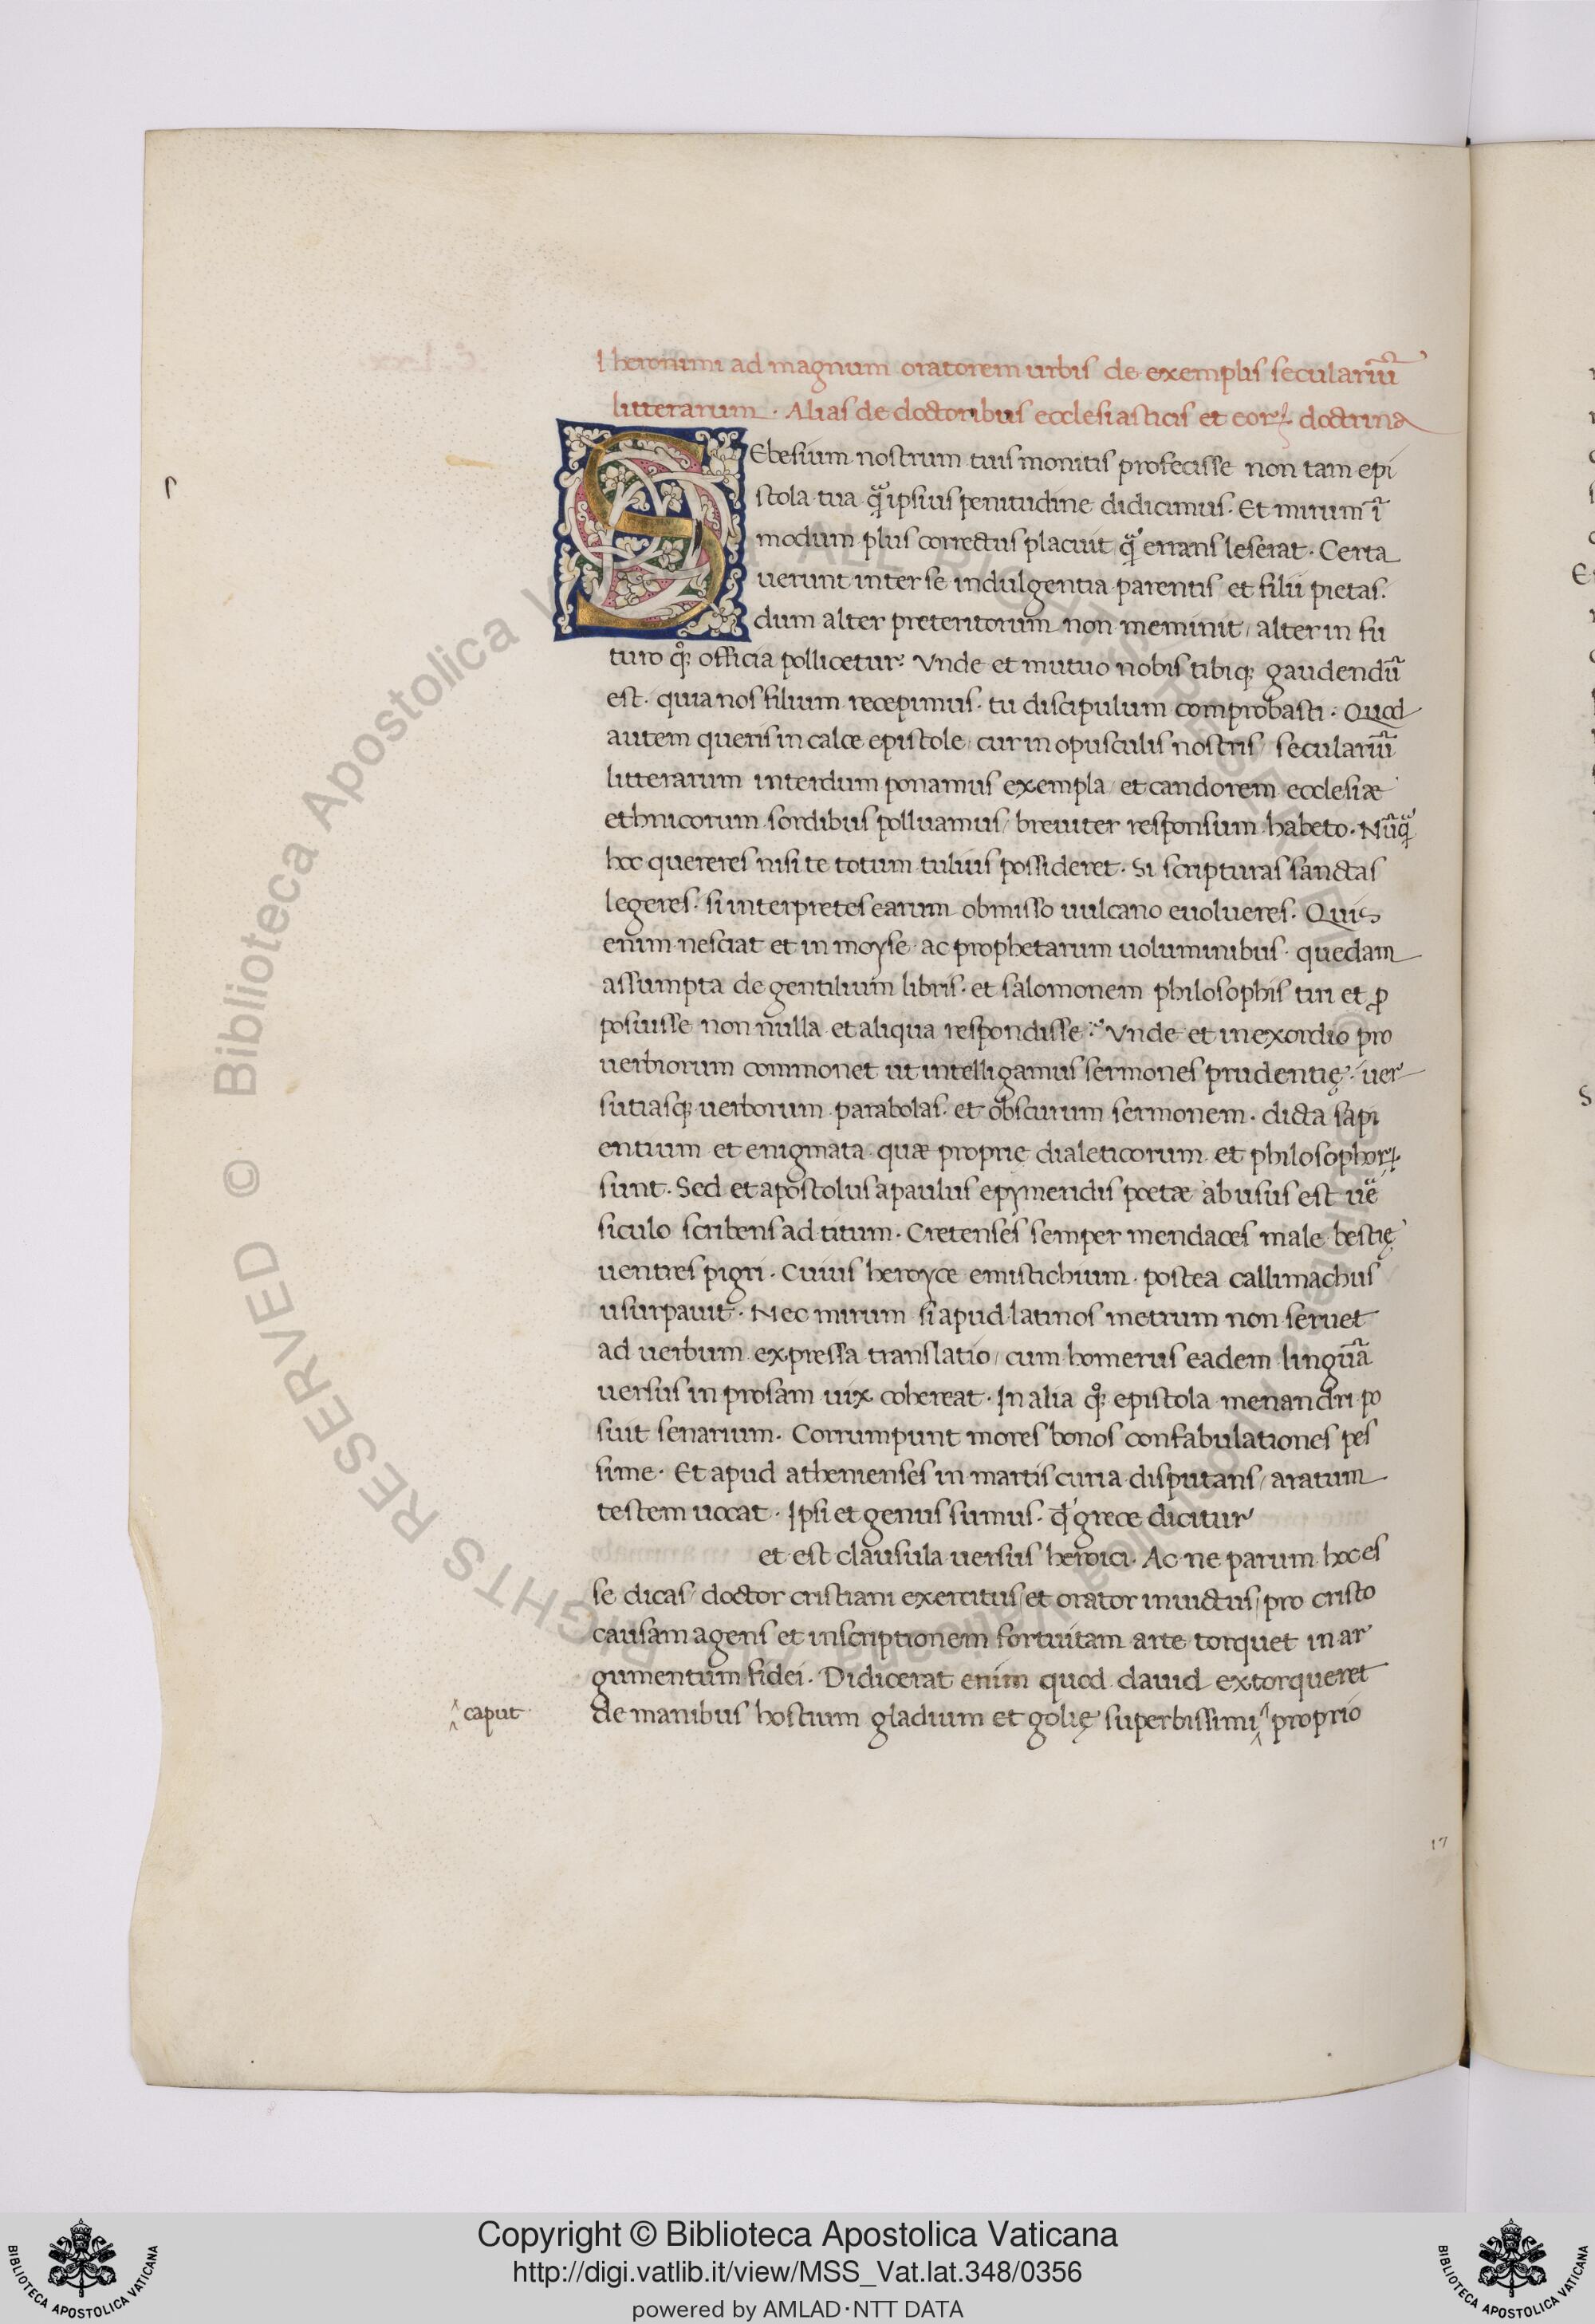 Iheronimi ad magnum oratorem urbis de exemplis seculariũ
litterarum. Alias de doctoribus ecclesiasticis et eoꝝ doctrina
SEbesium nostrum tuis monitis profecisse non tam epi
stola tua qᷓ ipsius penitudine didicimus. Et mirum ĩ
modum plus correctus placuit qᷓ errans leserat. Certa
uerunt inter se indulgentia parentis et filii pietas.
dum alter preteritorum non meminit/ alter in fu
turo qͦꝫ officia pollicetur. Vnde et mutuo nobis tibiqꝫ gaudendũ
est. quia nos filium recepimus. tu discipulum comprobasti. Quod
autem queris in calce epistole/ cur in opusculis nostris/ seculariũ
litterarum interdum ponamus exempla/ et candorem ecclesiæ
ethnicorum sordibus polluamus/ breuiter responsum habeto. Nũqᷓ
hoc quereres nisi te totum tulius possideret. Si scripturas sanctas
legeres. si interpretes earum obmisso uulcano euolueres. Quis
enim nesciat et in moyse ac prophetarum uoluminibus. quedam
assumpta de gentilium libris. et salomonem philosophis tiri et ꝓ
posuisse non nulla et aliqua respondisse. Vnde et in exordio pro
uerbiorum commonet ut intelligamus sermones prudentię. uer
sutiasqꝫ uerborum parabolas. et obscurum sermonem. dicta sapi
entium et enigmata quæ proprie dialeticorum et philosophoꝝ
sunt. Sed et apostolus apaulus epymenidis poetæ abusus est uẽ
siculo scribens ad titum. Cretenses semper mendaces male bestię
uentres pigri. Cuius heroyce emistichium. postea callimachus
usurpauit. Nec mirum si apud latinos metrum non seruet
ad uerbum expressa translatio/ cum homerus eadem linguã
uersus in prosam uix cohereat. In alia qͦꝫ epistola menandri po
suit senarium. Corrumpunt mores bonos confabulationes pes
sime. Et apud athenienses in martis curia disputans/ aratum
testem uocat. Ipsi et genus sumus. qđ grece dicitur
et est clausula uersus heroici. Ac ne parum hoc es
se dicas/ doctor cristiani exercitus/ et orator inuictus/ pro cristo
causam agens et inscriptionem fortuitam arte torquet in ar
gumentum fidei. Didicerat enim quod dauid extorqueret
de manibus hostium gladium et golię superbissimi ^ proprio
^ caput
17
BIBLIOTECA APOSTOLICA VATICANA
Copyright © Biblioteca Apostolica Vaticana
http://digi.vatlib.it/view/MSS_Vat.lat.348/0356
powered by AMLAD·NTT DATA
BIBLIOTECA APOSTOLICA VATICANA